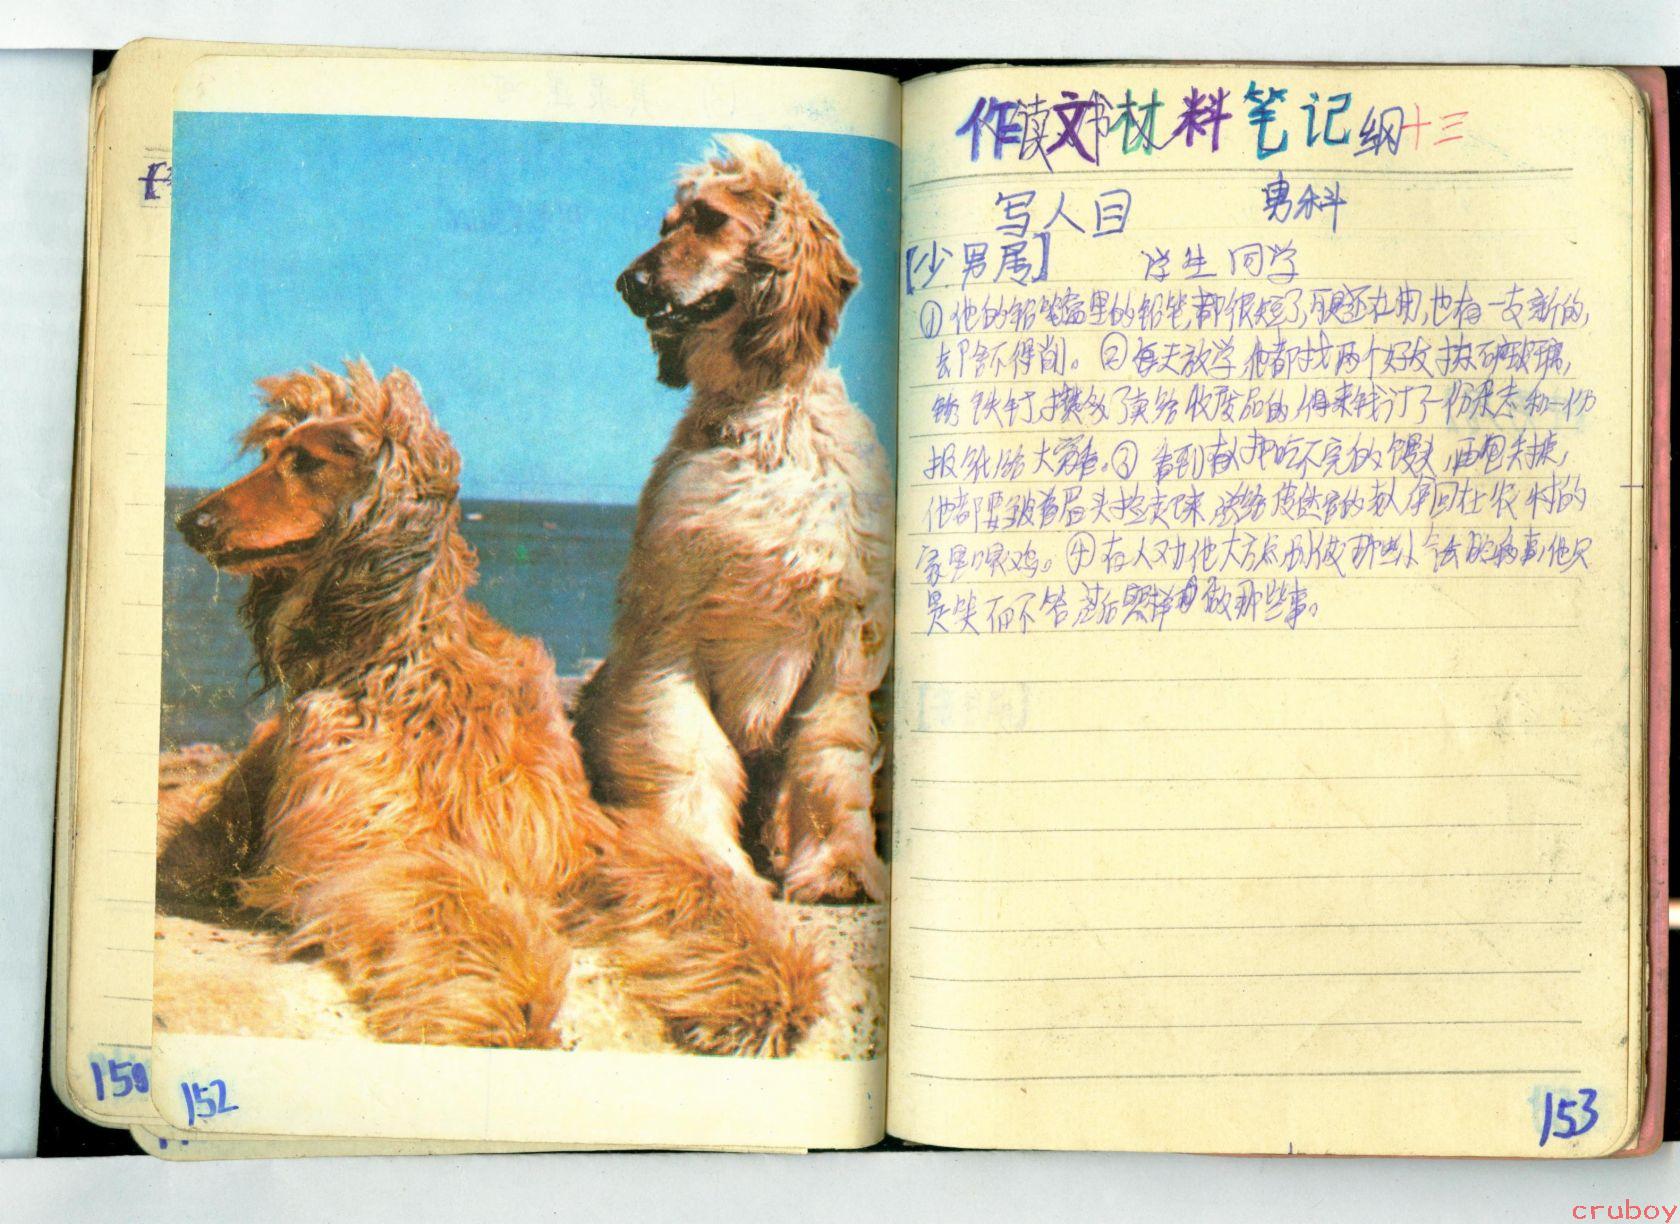 作读文书材料笔记纲十三
写人目 男科
【少男属】 学生 同学
①他的铅笔盒里的铅笔,都很短了,可是还在用,也有一支新的,
却舍不得削。②每天放学,他都找两个好友捡碎玻璃,
锈铁钉,攒多了卖给收废品的,得来钱订了一份杂志和一份
报纸给大家看。③看到有人把吃不完的馒头,面包丢掉,
他都要皱着眉头捡起来送给食堂的人拿回在农村的
家里喂鸡。④有人劝他大方点别做那些小气的事,他只
是笑而不答过后照样做那些事。
150
152
153
cruboy